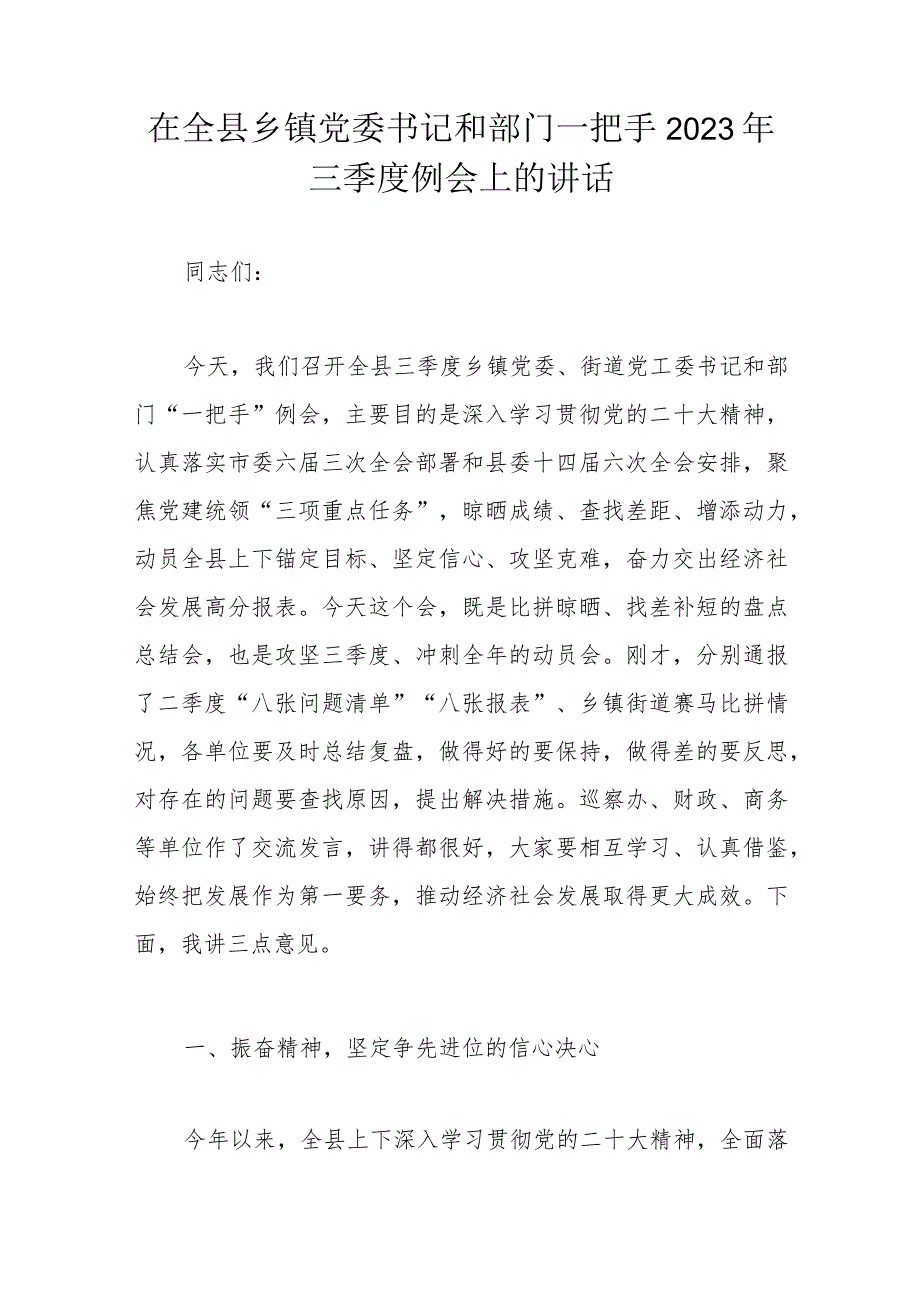 在全县乡镇党委书记和部门一把手2023年
三季度例会上的讲话
同志们：
今天，我们召开全县三季度乡镇党委、街道党工委书记和部
门“一把手”例会，主要目的是深入学习贯彻党的二十大精神，
认真落实市委六届三次全会部署和县委十四届六次全会安排，聚
焦党建统领“三项重点任务”，晾晒成绩、查找差距、增添动力，
动员全县上下锚定目标、坚定信心、攻坚克难，奋力交出经济社
会发展高分报表。今天这个会，既是比拼晾晒、找差补短的盘点
总结会，也是攻坚三季度、冲刺全年的动员会。刚才，分别通报
了二季度“八张问题清单”“八张报表”、乡镇街道赛马比拼情
况，各单位要及时总结复盘，做得好的要保持，做得差的要反思，
对存在的问题要查找原因，提出解决措施。巡察办、财政、商务
等单位作了交流发言，讲得都很好，大家要相互学习、认真借鉴，
始终把发展作为第一要务，推动经济社会发展取得更大成效。下
面，我讲三点意见。
一、振奋精神，坚定争先进位的信心决心
今年以来，全县上下深入学习贯彻党的二十大精神，全面落